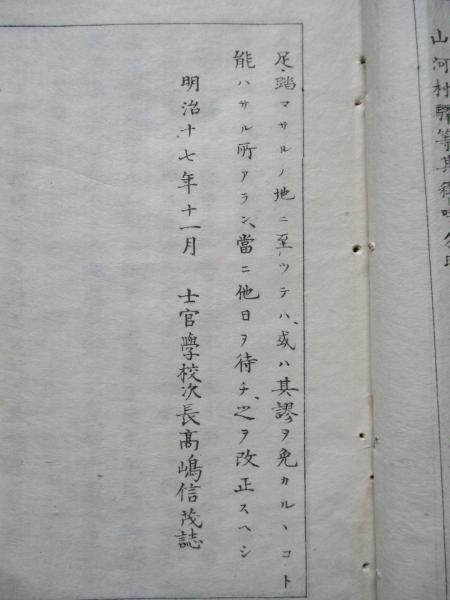 山河村驛等其
足踏マサルノ地ニ至ツテハ、或ハ其謬ヲ免カルヽコト
能ハサル所アラン、當ニ他日ヲ待チ、之ヲ改正スヘシ
明治十七年十一月　士官學校次長高嶋信茂誌